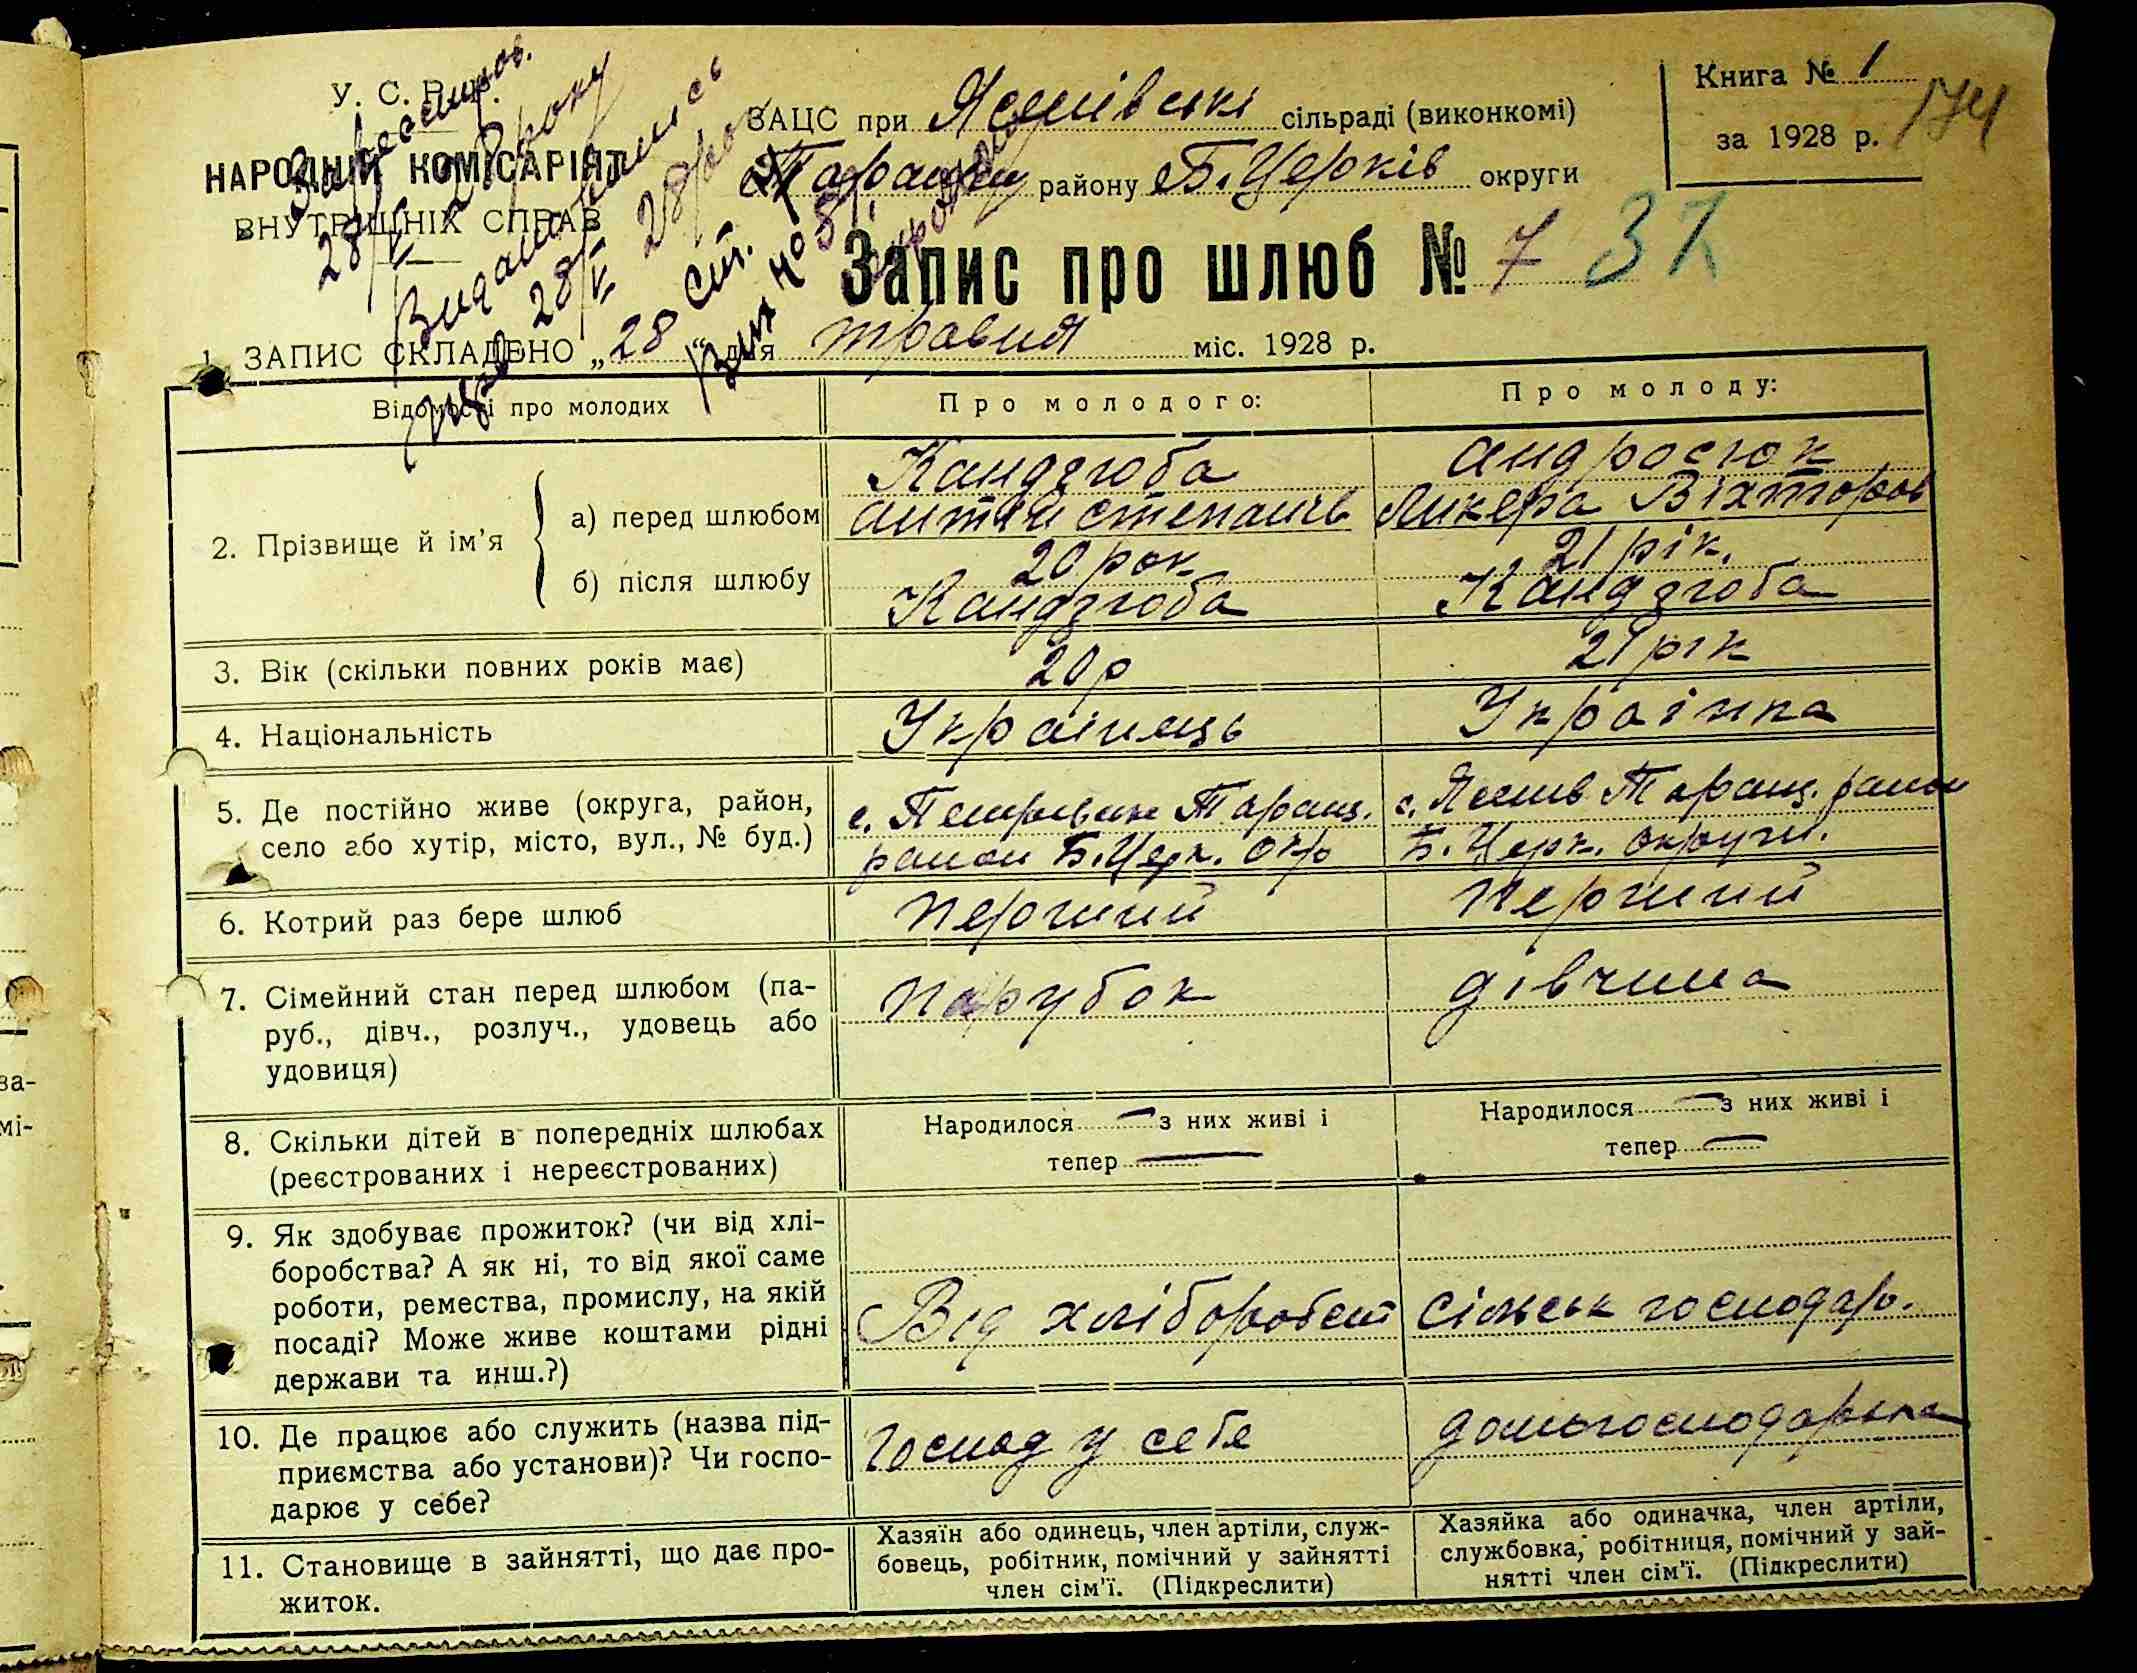 У. С. Р. Р.
НАРОДНІЙ КОМІСАРІЯТ
ВНУТРІШНІХ СПРАВ
28/V 28 року
28/V 28 року
ЗАЦС при Яснівські сільраді (виконкомі)
Таращ району Б. Церків округи
Книга № 1
за 1928 р.
174
Запис про шлюб № 7 37
1. ЗАПИС СКЛАДЕНО „28“ дня травня міс. 1928 р.
Відомості про молодих
Про молодого:
Про молоду:
2. Прізвище й ім'я
а) перед шлюбом
б) після шлюбу
Кандзюба
Антін Степанів
20 рок
Кандзюба
Андросюк
Ликера Вікторов
21 рік.
Кандзюба
3. Вік (скільки повних років має)
20 р
21 рік
4. Національність
Українець
Українка
5. Де постійно живе (округа, район,
село або хутір, місто, вул., № буд.)
с. Петрівське Таращ.
район Б. Церк. окр
с. Яснів Таращ. район
Б. Церк. округи.
6. Котрий раз бере шлюб
Перший
Перший
7. Сімейний стан перед шлюбом (па-
руб., дівч., розлуч., удовець або
удовиця)
Парубок
дівчина
8. Скільки дітей в попередніх шлюбах
(реєстрованих і нереєстрованих)
Народилося — з них живі і
тепер —
Народилося — з них живі і
тепер —
9. Як здобуває прожиток? (чи від хлі-
боробства? А як ні, то від якої саме
роботи, ремества, промислу, на якій
посаді? Може живе коштами рідні
держави та инш.?)
Від хліборобст
сільськ господар.
10. Де працює або служить (назва під-
приємства або установи)? Чи госпо-
дарює у себе?
Господ у себе
домогосподарка
11. Становище в зайнятті, що дає про-
житок.
Хазяїн або одинець, член артіли, служ-
бовець, робітник, помічний у зайнятті
член сім'ї. (Підкреслити)
Хазяйка або одиначка, член артіли,
службовка, робітниця, помічний у зай-
нятті член сім'ї. (Підкреслити)